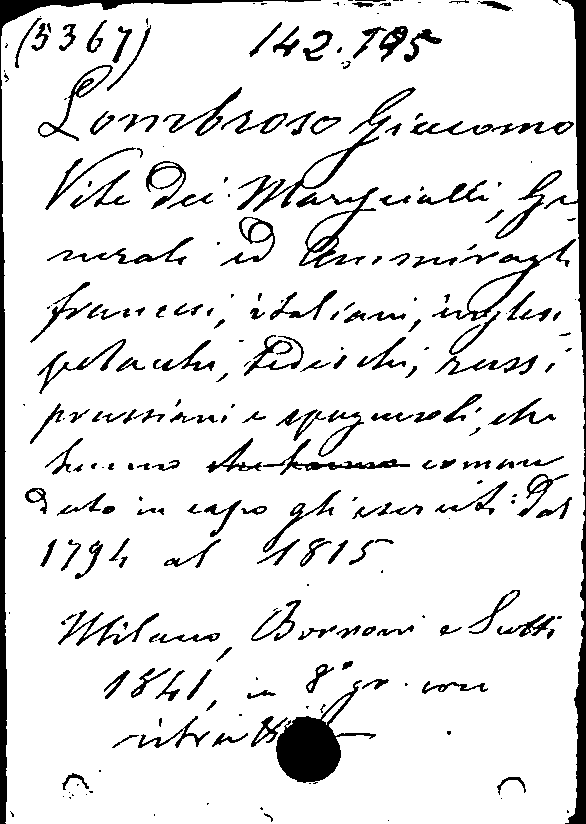 (5367) 142.195
Lombroso Giacomo
Vite dei Marescialli, Ge-
nerali ed Ammiragli
francesi, italiani, inglesi,
polacchi, tedeschi, russi
prussiani e spagnuoli, che
hanno che hanno coman
dato in capo gli eserciti: Dal
1794 al 1815
Milano, Borroni e Scotti
1841, in 8° gr. con
ritratti